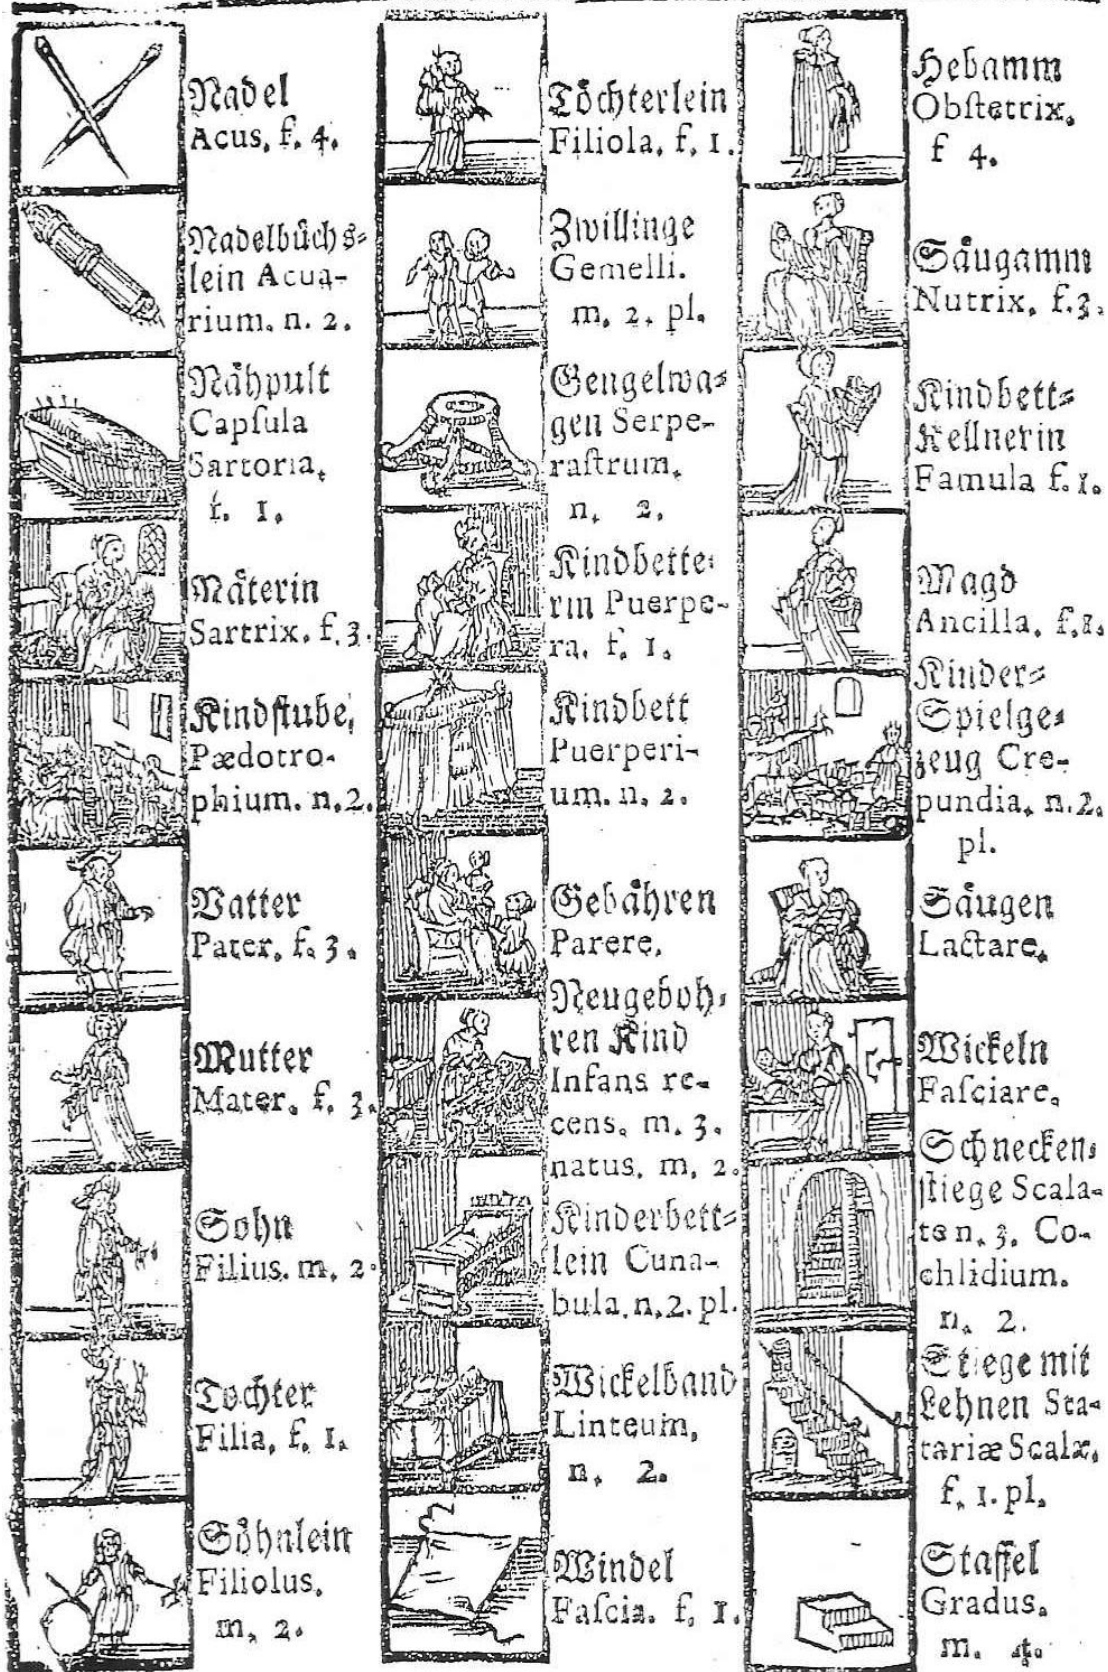 Nadel
Acus. f. 4.
Nadelbůchs⸗
lein Acua-
rium. n. 2.
Nåhpult
Capſula
Sartoria.
f. 1.
Nåterin
Sartrix. f. 3.
Kindſtube,
Pædotro-
phium. n. 2.
Vatter
Pater. f. 3.
Mutter
Mater. f. 3.
Sohn
Filius. m. 2.
Tochter
Filia. f. 1.
Sőhnlein
Filiolus.
m. 2.
Tőchterlein
Filiola. f. 1.
Zwillinge
Gemelli.
m. 2. pl.
Gengelwa⸗
gen Serpe-
raſtrum.
n. 2.
Kindbette⸗
rin Puerpe-
ra. f. 1.
Kindbett
Puerperi-
um. n. 2.
Gebåhren
Parere.
Neugeboh⸗
ren Kind
Infans re-
cens. m. 3.
natus. m. 2.
Kinderbett⸗
lein Cuna-
bula. n. 2. pl.
Wickelband
Linteum.
n. 2.
Windel
Faſcia. f. 1.
Hebamm
Obſtetrix.
f 4.
Såugamm
Nutrix. f. 3.
Kindbett⸗
Kellnerin
Famula f. 1.
Magd
Ancilla. f. 1.
Kinder⸗
Spielge⸗
zeug Cre-
pundia. n. 2.
pl.
Såugen
Lactare.
Wickeln
Faſciare.
Schnecken⸗
ſtiege Scala-
te n. 3. Co-
chlidium.
n. 2.
Stiege mit
Lehnen Sta-
tariæ Scalæ.
f. 1. pl.
Staffel
Gradus.
m. 4.